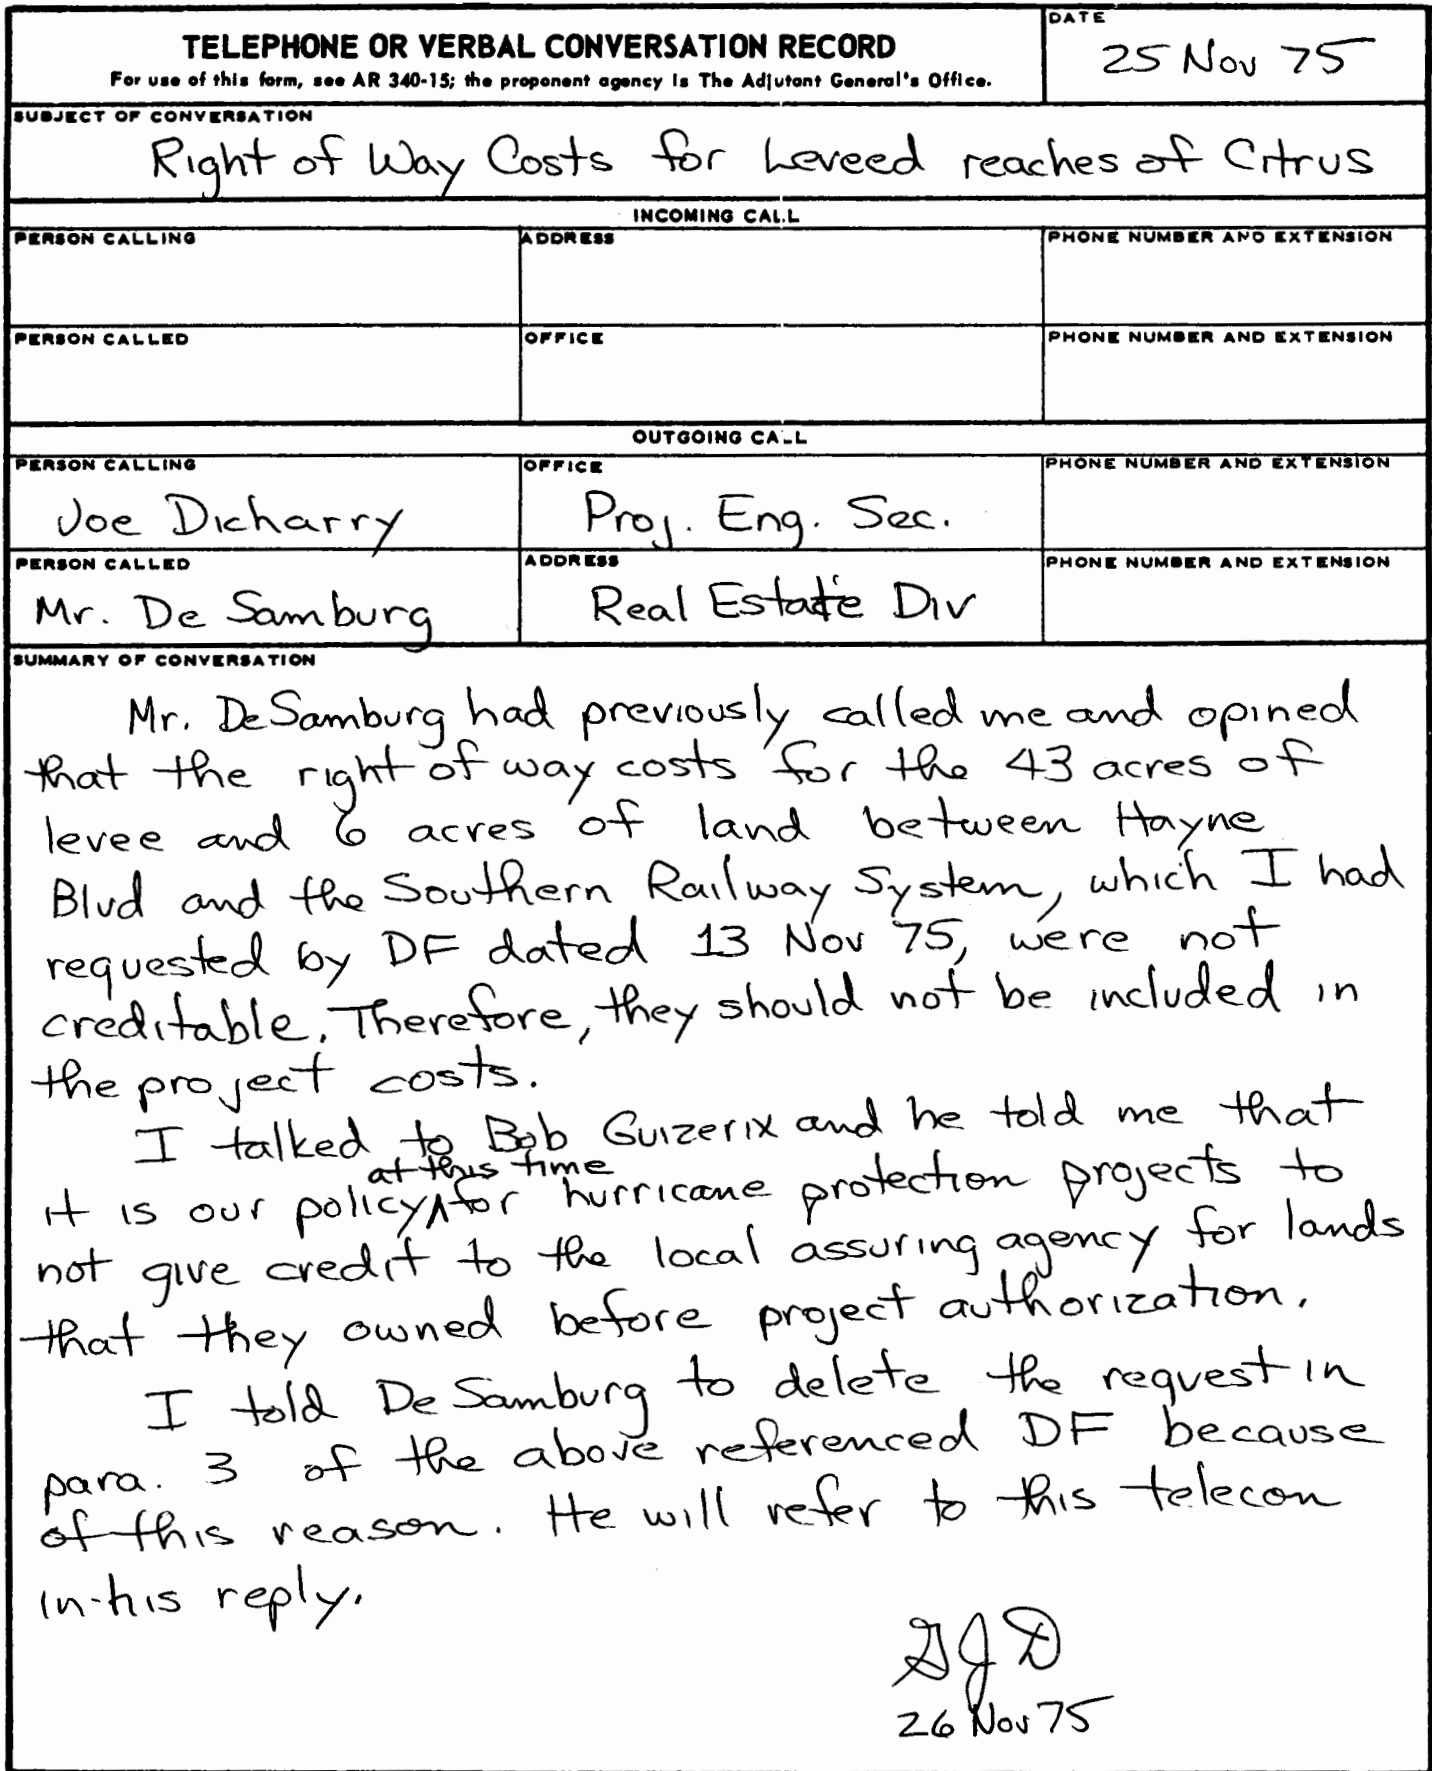 TELEPHONE OR VERBAL CONVERSATION RECORD
For use of this form, see AR 340-15; the proponent agency is The Adjutant General's Office.
DATE
25 Nov 75
SUBJECT OF CONVERSATION
Right of Way Costs for Leveed reaches of Citrus
INCOMING CALL
PERSON CALLING
ADDRESS
PHONE NUMBER AND EXTENSION
PERSON CALLED
OFFICE
PHONE NUMBER AND EXTENSION
OUTGOING CALL
PERSON CALLING
OFFICE
PHONE NUMBER AND EXTENSION
Joe Dicharry
Proj. Eng. Sec.
PERSON CALLED
ADDRESS
PHONE NUMBER AND EXTENSION
Mr. De Samburg
Real Estate Div
SUMMARY OF CONVERSATION
Mr. DeSamburg had previously called me and opined
that the right of way costs for the 43 acres of
levee and 6 acres of land between Hayne
Blvd and the Southern Railway System, which I had
requested by DF dated 13 Nov 75, were not
creditable. Therefore, they should not be included in
the project costs.
I talked to Bob Guizerix and he told me that
it is our policy at this time for hurricane protection projects to
not give credit to the local assuring agency for lands
that they owned before project authorization.
I told De Samburg to delete the request in
para. 3 of the above referenced DF because
of this reason. He will refer to this telecon
in his reply.
GJD
26 Nov 75